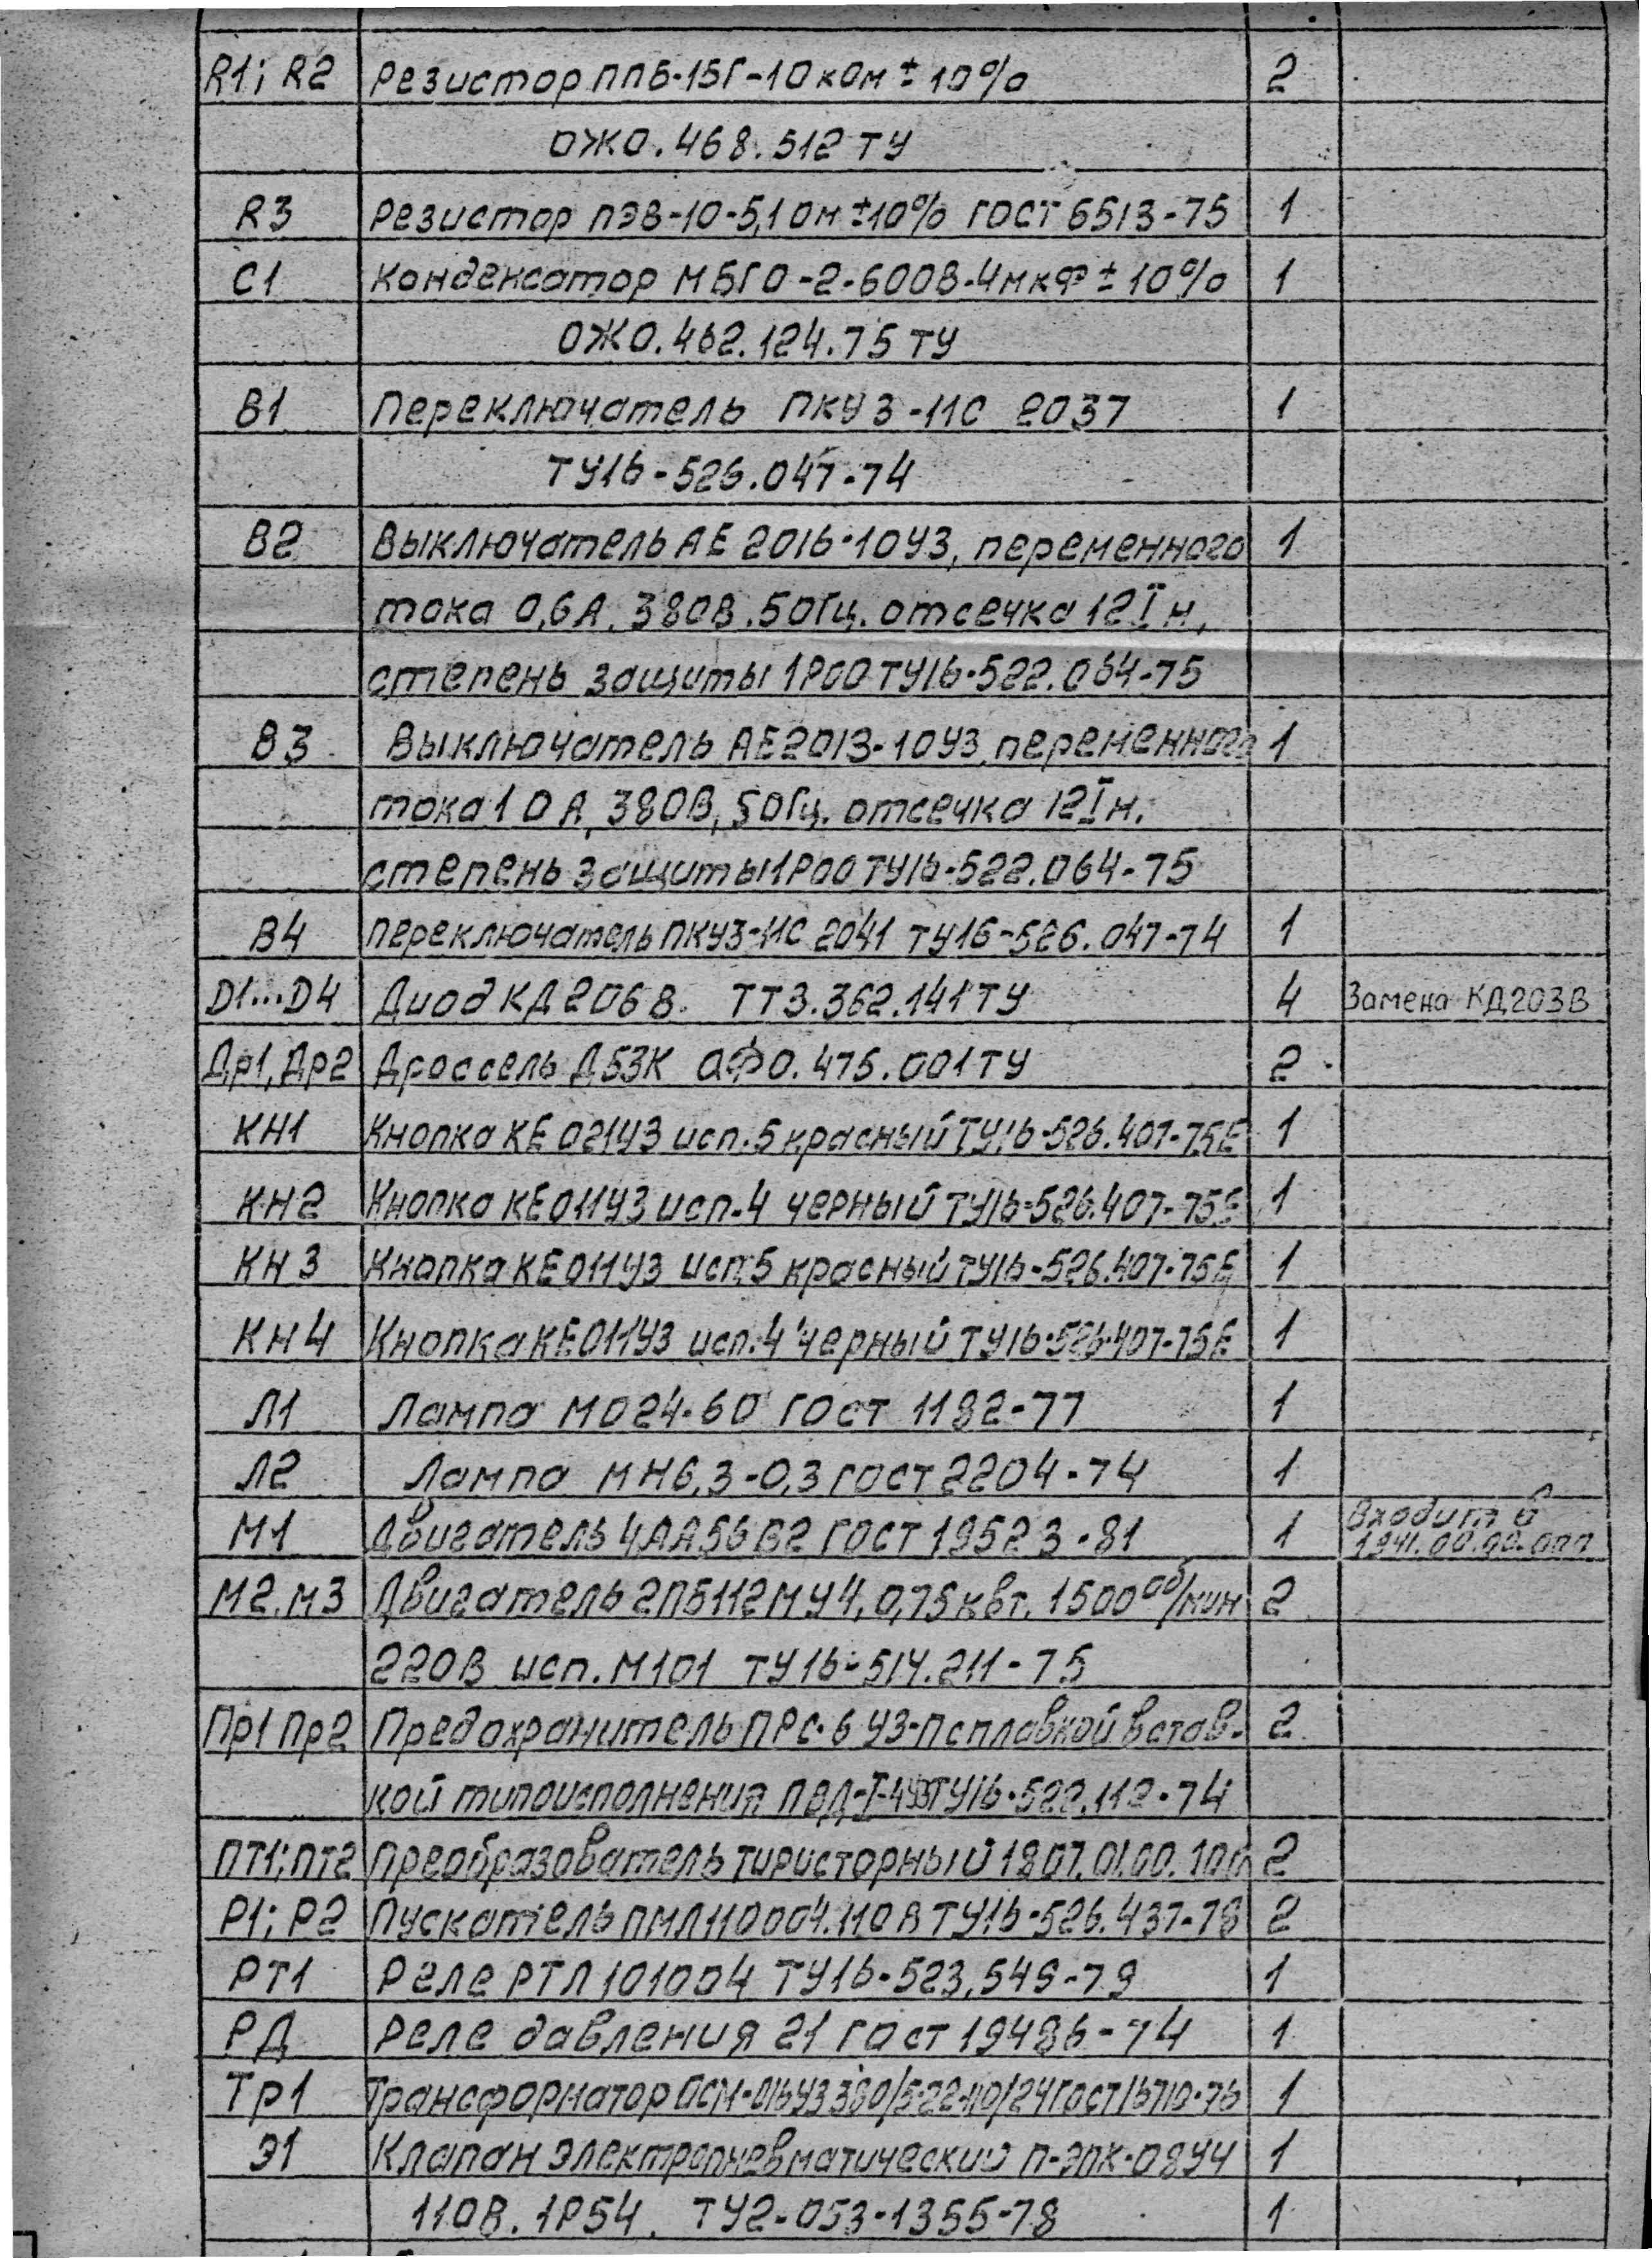 R1; R2 Резистор ППБ-15Г-10 кОм ± 10% 2
ОЖ0.468.512 ТУ
R3 Резистор ПЭВ-10-5,1 Ом ±10% ГОСТ 6513-75 1
С1 Конденсатор МБГО-2-600В-4мкФ ± 10% 1
ОЖ0.462.124.75 ТУ
В1 Переключатель ПКУ3-11С 2037 1
ТУ16-526.047-74
В2 Выключатель АЕ 2016-10У3, переменного 1
тока 0,6А, 380В.50Гц. отсечка 12Iн,
степень защиты 1Р00 ТУ16-522.064-75
В3 Выключатель АЕ2013-10У3, переменного 1
тока 10А, 380В, 50Гц. отсечка 12Iн.
степень защиты 1Р00 ТУ16-522.064-75
В4 Переключатель ПКУ3-11С 2041 ТУ16-526.047-74 1
D1...D4 Диод КД 206В. ТТ3.362.141ТУ 4 Замена КД203В
Др1, Др2 Дроссель Д53К ОФ0.475.001ТУ 2
КН1 Кнопка КЕ 021У3 исп.5 красный ТУ16-526.407-75Е 1
КН2 Кнопка КЕ011У3 исп.4 черный ТУ16-526.407-75Е 1
КН3 Кнопка КЕ011У3 исп.5 красный ТУ16-526.407-75Е 1
КН4 Кнопка КЕ011У3 исп.4 черный ТУ16-526.407-75Е 1
Л1 Лампа МО24-60 ГОСТ 1182-77 1
Л2 Лампа МН6,3-0,3 ГОСТ 2204-74 1
М1 Двигатель 4АА56В2 ГОСТ 19523-81 1 Входит в
1941.00.00.000
М2, М3 Двигатель 2ПБ112МУ4, 0,75 квт. 1500 об/мин 2
220В исп. М101 ТУ16-514.211-75
Пр1 Пр2 Предохранитель ПРС-6 У3-П с плавкой встав- 2
кой типоисполнения ТУ16-522.112-74
ПТ1; ПТ2 Преобразователь тиристорный 1807.01.00.100 2
Р1; Р2 Пускатель ПМЛ110004.110В ТУ16-526.437-78 2
РТ1 Реле РТЛ101004 ТУ16-523.549-79 1
РД Реле давления 21 ГОСТ 19486-74 1
Тр1 Трансформатор ОСМ-016У3 380/5-22-110/24 ГОСТ16710-76 1
Э1 Клапан электропневматический П-ЭПК-08У4 1
110В. 1Р54. ТУ2-053-1355-78 1